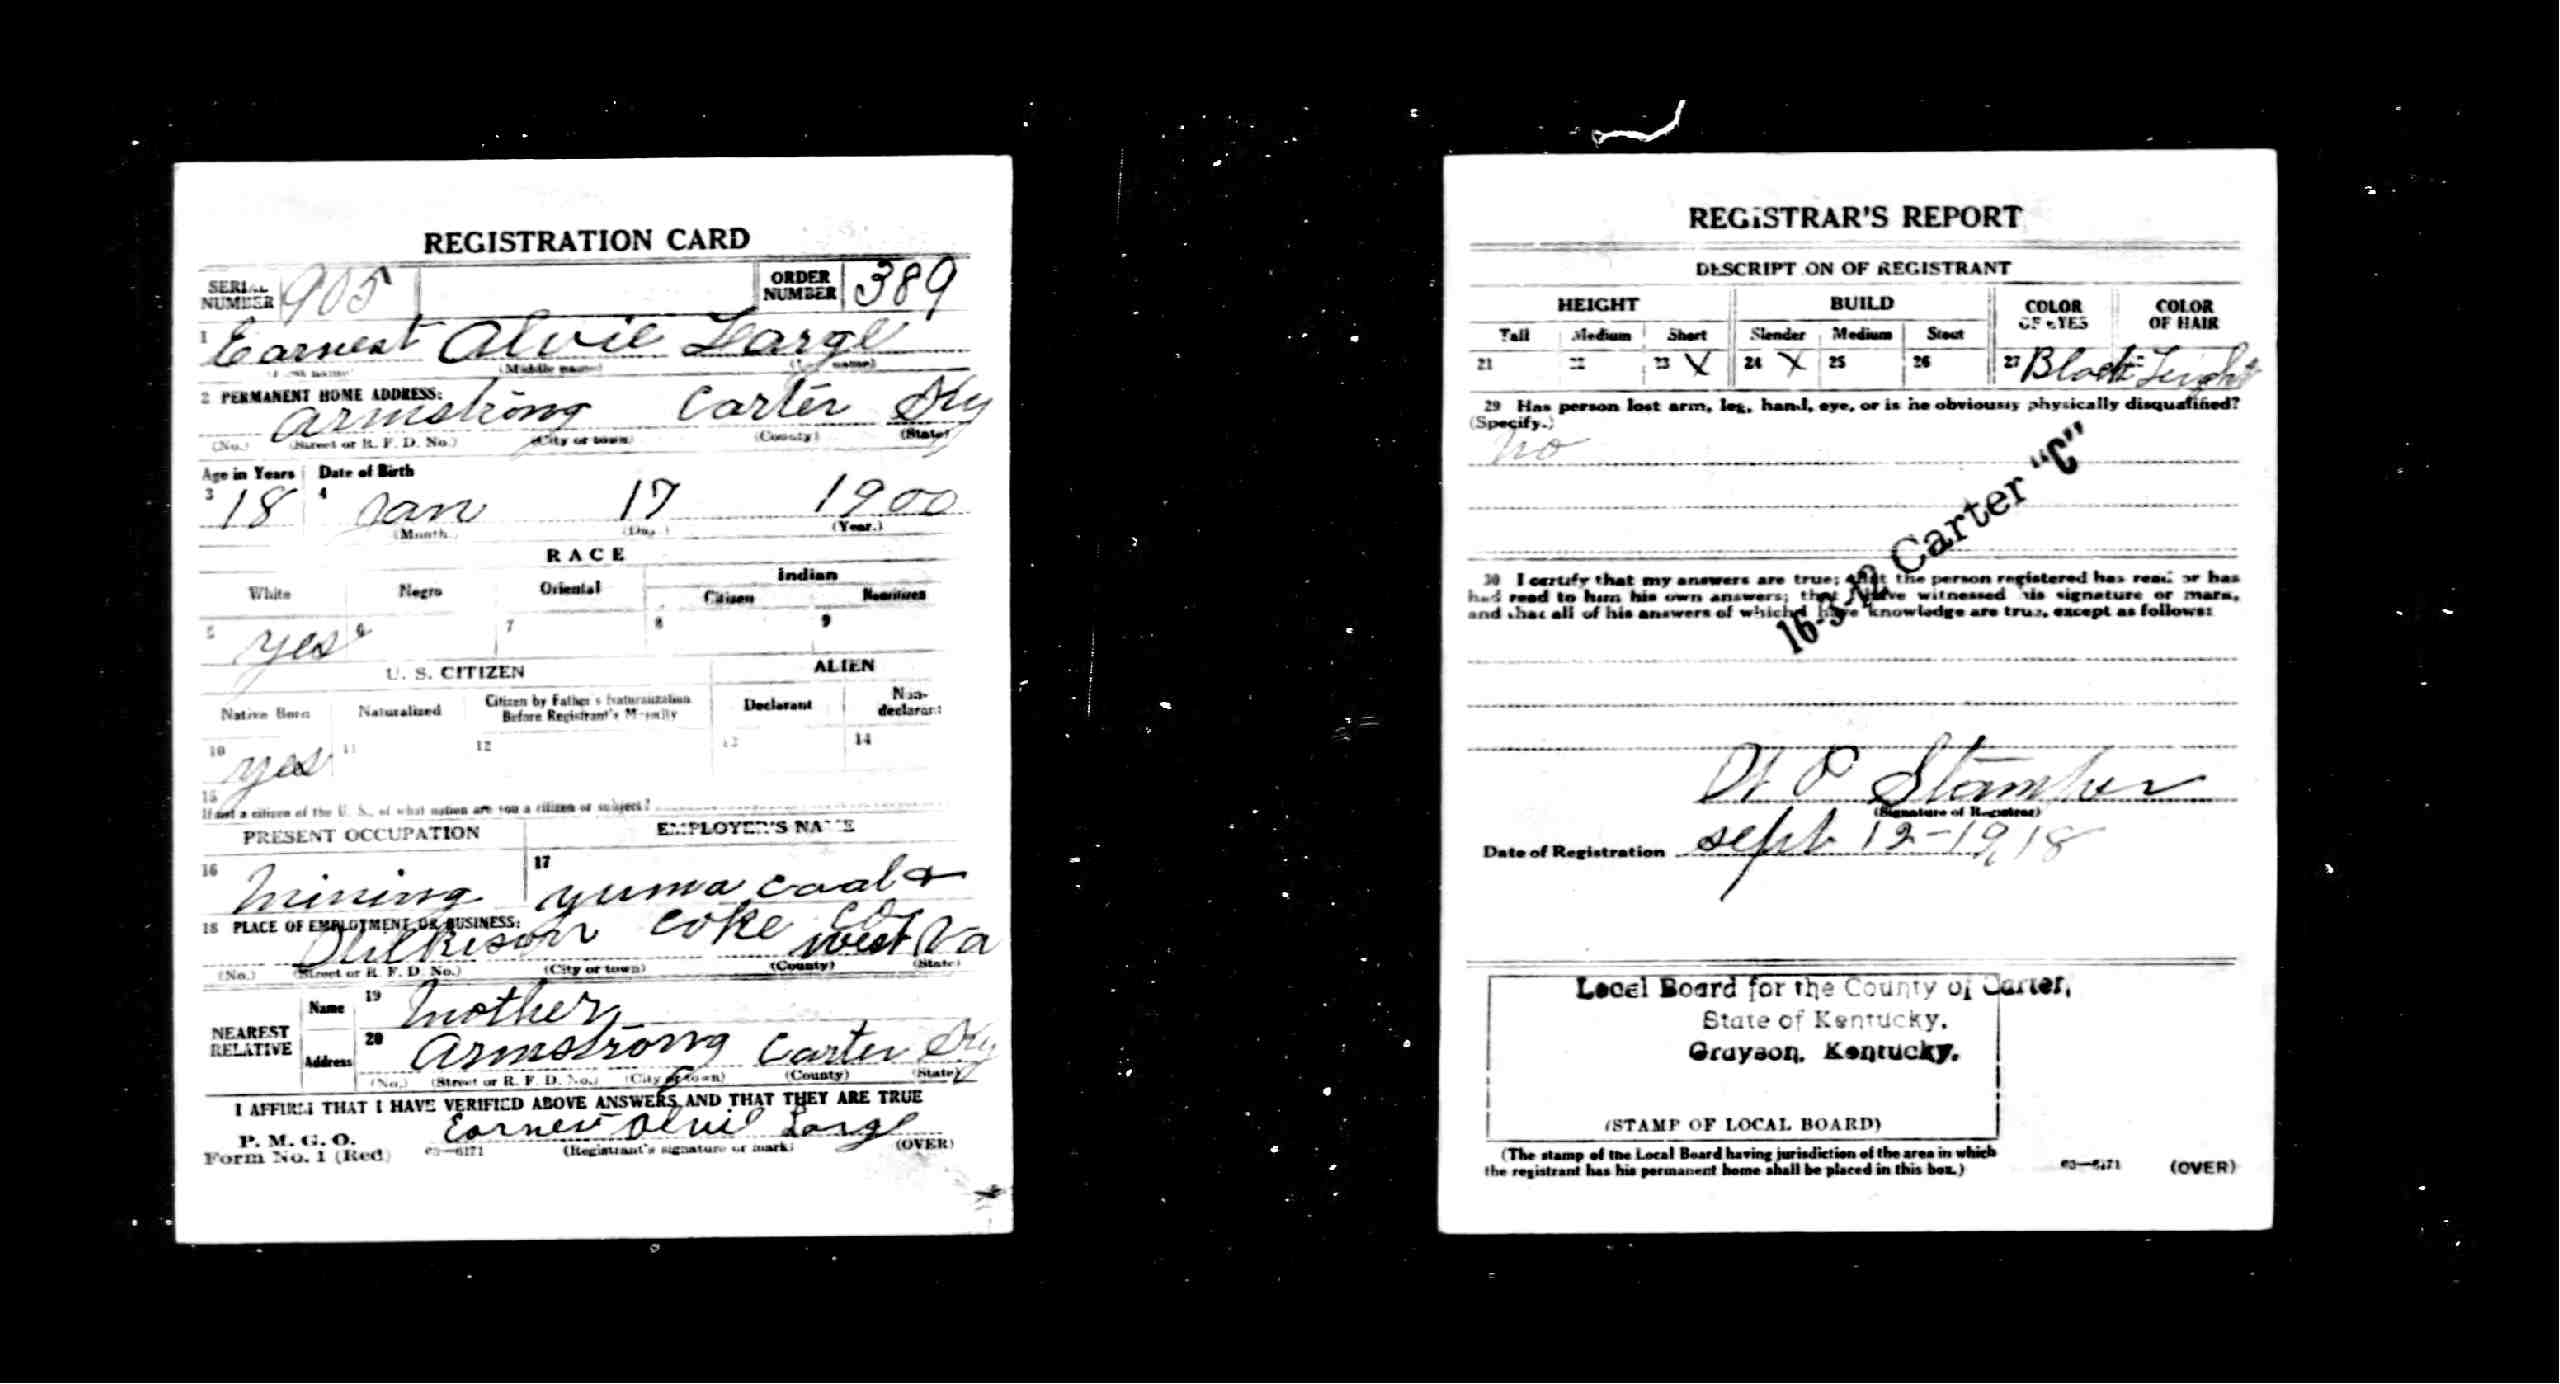 REGISTRATION CARD
SERIAL NUMBER 905 ORDER NUMBER 389
1 Earnest Alvie Large
(First name) (Middle name) (Last name)
2 PERMANENT HOME ADDRESS:
Armstrong Carter Ky
(No.) (Street or R. F. D. No.) (City or town) (County) (State)
Age in Years Date of Birth
3 18 4 Jan 17 1900
(Month.) (Day.) (Year.)
RACE
White Negro Oriental Indian
Citizen Noncitizen
5 yes 6 7 8 9
U. S. CITIZEN ALIEN
Native Born Naturalized Citizen by Father's Naturalization Before Registrant's Majority Declarant Non-declarant
10 yes 11 12 13 14
15
If not a citizen of the U. S., of what nation are you a citizen or subject?
PRESENT OCCUPATION EMPLOYER'S NAME
16 Mining 17 Yuma Coal &
Coke Co
18 PLACE OF EMPLOYMENT OR BUSINESS:
West Va
(No.) (Street or R. F. D. No.) (City or town) (County) (State)
NEAREST RELATIVE
Name 19 Mother
Address 20 Armstrong Carter Ky
(No.) (Street or R. F. D. No.) (City or town) (County) (State)
I AFFIRM THAT I HAVE VERIFIED ABOVE ANSWERS AND THAT THEY ARE TRUE
P. M. G. O.
Form No. 1 (Red) Earnest Alvie Large
03—6171 (Registrant's signature or mark) (OVER)
REGISTRAR'S REPORT
DESCRIPTION OF REGISTRANT
HEIGHT BUILD COLOR OF EYES COLOR OF HAIR
Tall Medium Short Slender Medium Stout
21 22 23 X 24 X 25 26 27 Black Light
29 Has person lost arm, leg, hand, eye, or is he obviously physically disqualified?
(Specify.)
No
16-3-12 Carter "C"
30 I certify that my answers are true; that the person registered has read or has
had read to him his own answers; that I have witnessed his signature or mark,
and that all of his answers of which I have knowledge are true, except as follows:
P Stamper
(Signature of Registrar)
Date of Registration Sept 12-1918
Local Board for the County of Carter,
State of Kentucky.
Grayson, Kentucky.
(STAMP OF LOCAL BOARD)
(The stamp of the Local Board having jurisdiction of the area in which
the registrant has his permanent home shall be placed in this box.)
03—6171 (OVER)